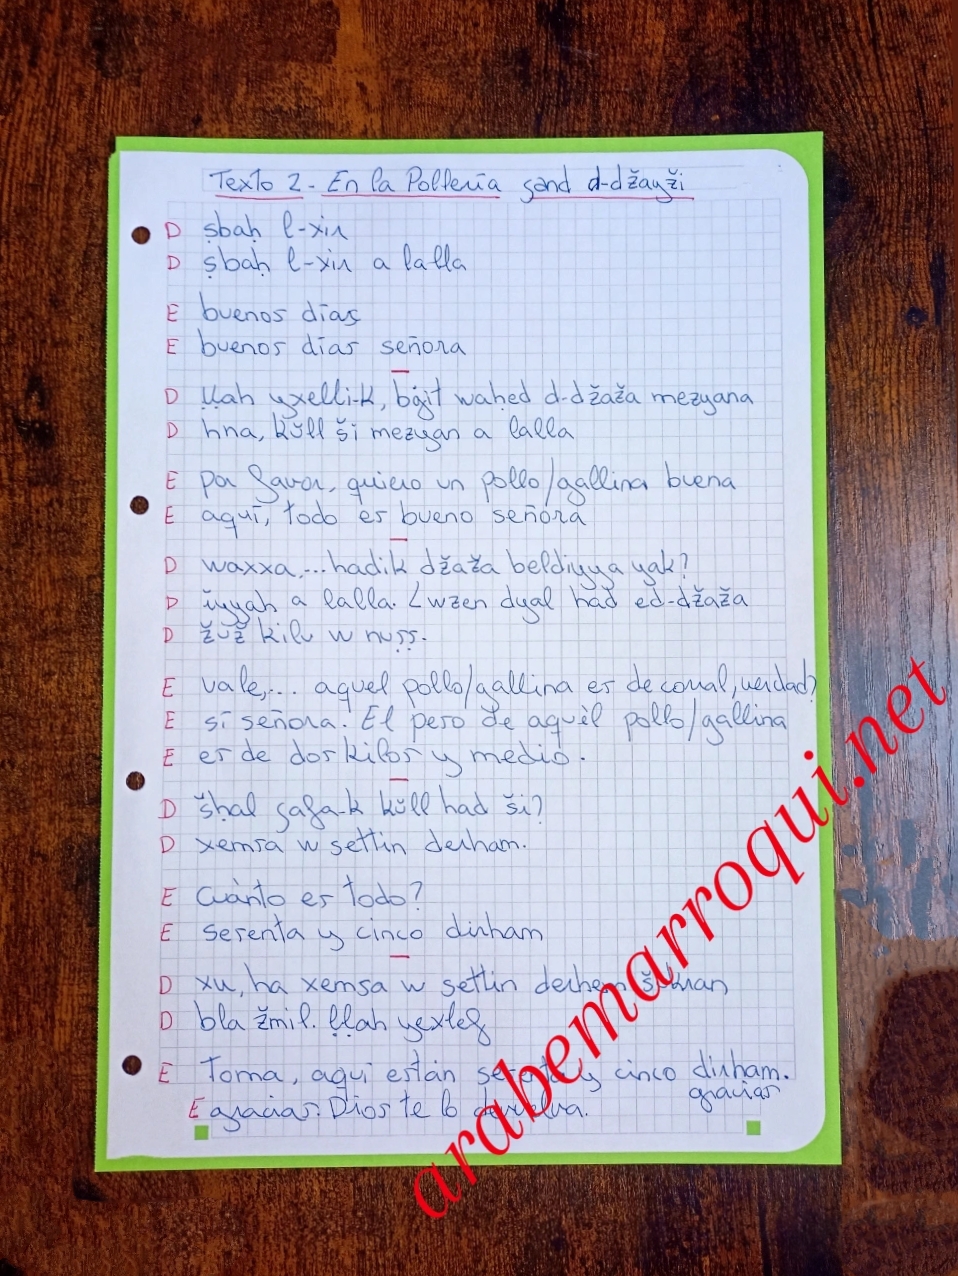 Texto 2 - En la Pollería ɛand d-džayži
D ṣbaḥ l-xir
D ṣbaḥ l-xir a lalla
E buenos días
E buenos días señora
D ḷḷah yxelli-k, bġit waḥed d-džaža mezyana
D hna, kŭll ši mezyan a lalla
E por favor, quiero un pollo/gallina buena
E aquí, todo es bueno señora
D waxxa,...hadik džaža beldiyya yak?
D ĭyyah a lalla. L-wzen dyal had ed-džaža
D žuž kilu w nuṣṣ.
E vale,... aquel pollo/gallina es de corral, verdad?
E sí señora. El peso de aquél pollo/gallina
E es de dos kilos y medio.
D šḥal ɛafa-k kŭll had ši?
D xemsa w settin derham.
E Cuánto es todo?
E Sesenta y cinco dirham
D xu, ha xemsa w settin derhem šukran
D bla žmil. ḷḷah yexlef
E Toma, aquí están sesenta y cinco dirham.
gracias
E gracias. Dios te lo devuelva.
arabemarroqui.net